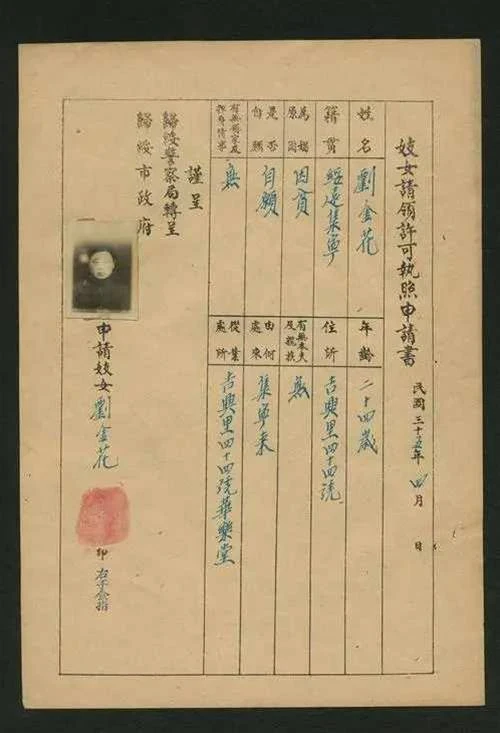 妓女請領許可執照申請書
民國三十五年 四月 日
姓名 劉金花
年齡 二十四歲
籍貫 綏遠集寧
住所 吉興里四十四號
為娼原因 因貧
有無本夫及親族 無
是否自願 自願
由何處來 集寧來
有無
無
從業處所 吉興里四十四號華樂堂
謹呈
歸綏警察局轉呈
歸綏市政府
申請妓女 劉金花
印 右手食指